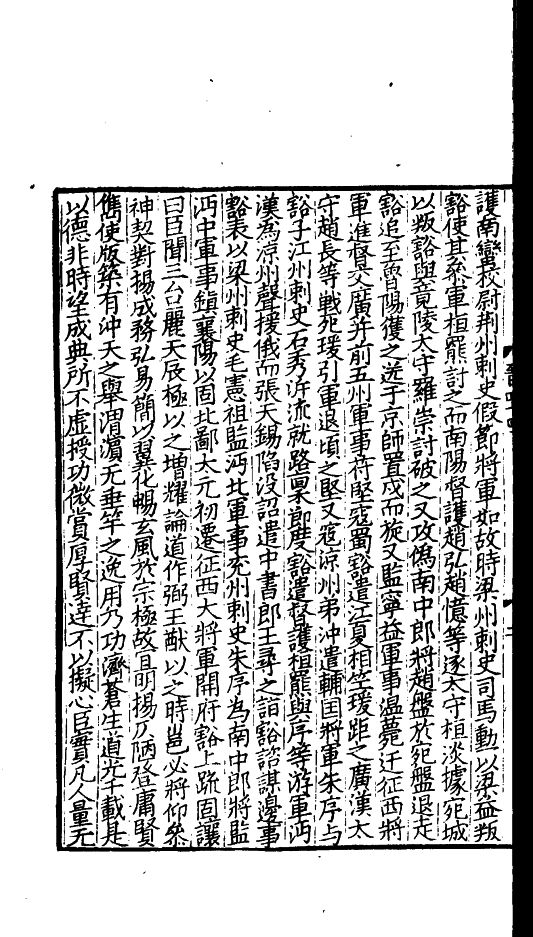 護南蠻校尉荆州刺史假節將軍如故時梁州刺史司馬勳以梁益叛
豁使其叅軍桓羆討之而南陽督護趙弘趙憶等逐太守桓淡據宛城
以叛豁與竟陵太守羅崇討破之又攻僞南中郎將趙盤於宛盤退走
豁追至魯陽獲之送于京師置戍而旋又監寧益軍事温薨迁征西將
軍進督交廣并前五州軍事苻堅寇蜀豁遣江夏相竺瑗距之廣漢太
守趙長等戰死瑗引軍退頃之堅又寇凉州弟沖遣輔囯將軍朱序与
豁子江州刺史石秀泝流就路稟節度豁遣督護桓羆與序等游軍沔
漢為凉州聲援俄而張天錫陷沒詔遣中書郎王尋之詣豁諮謀邊事
豁表以梁州刺史毛憲祖監沔北軍事兖州刺史朱序為南中郎將監
沔中軍事鎮襄陽以固北鄙太元初遷征西大將軍開府豁上疏固讓
曰臣聞三台麗天辰極以之增耀論道作弼王猷以之時邕必將仰叅
神契對揚成務弘易簡以翼化暢玄風於宗極故宜明揚仄陋登庸賢
雋使版築有沖天之舉渭濵无垂竿之逸用乃功濟蒼生道光千載是
以德非時望成典所不虚授功微賞厚賢達不以擬心臣實凡人量无